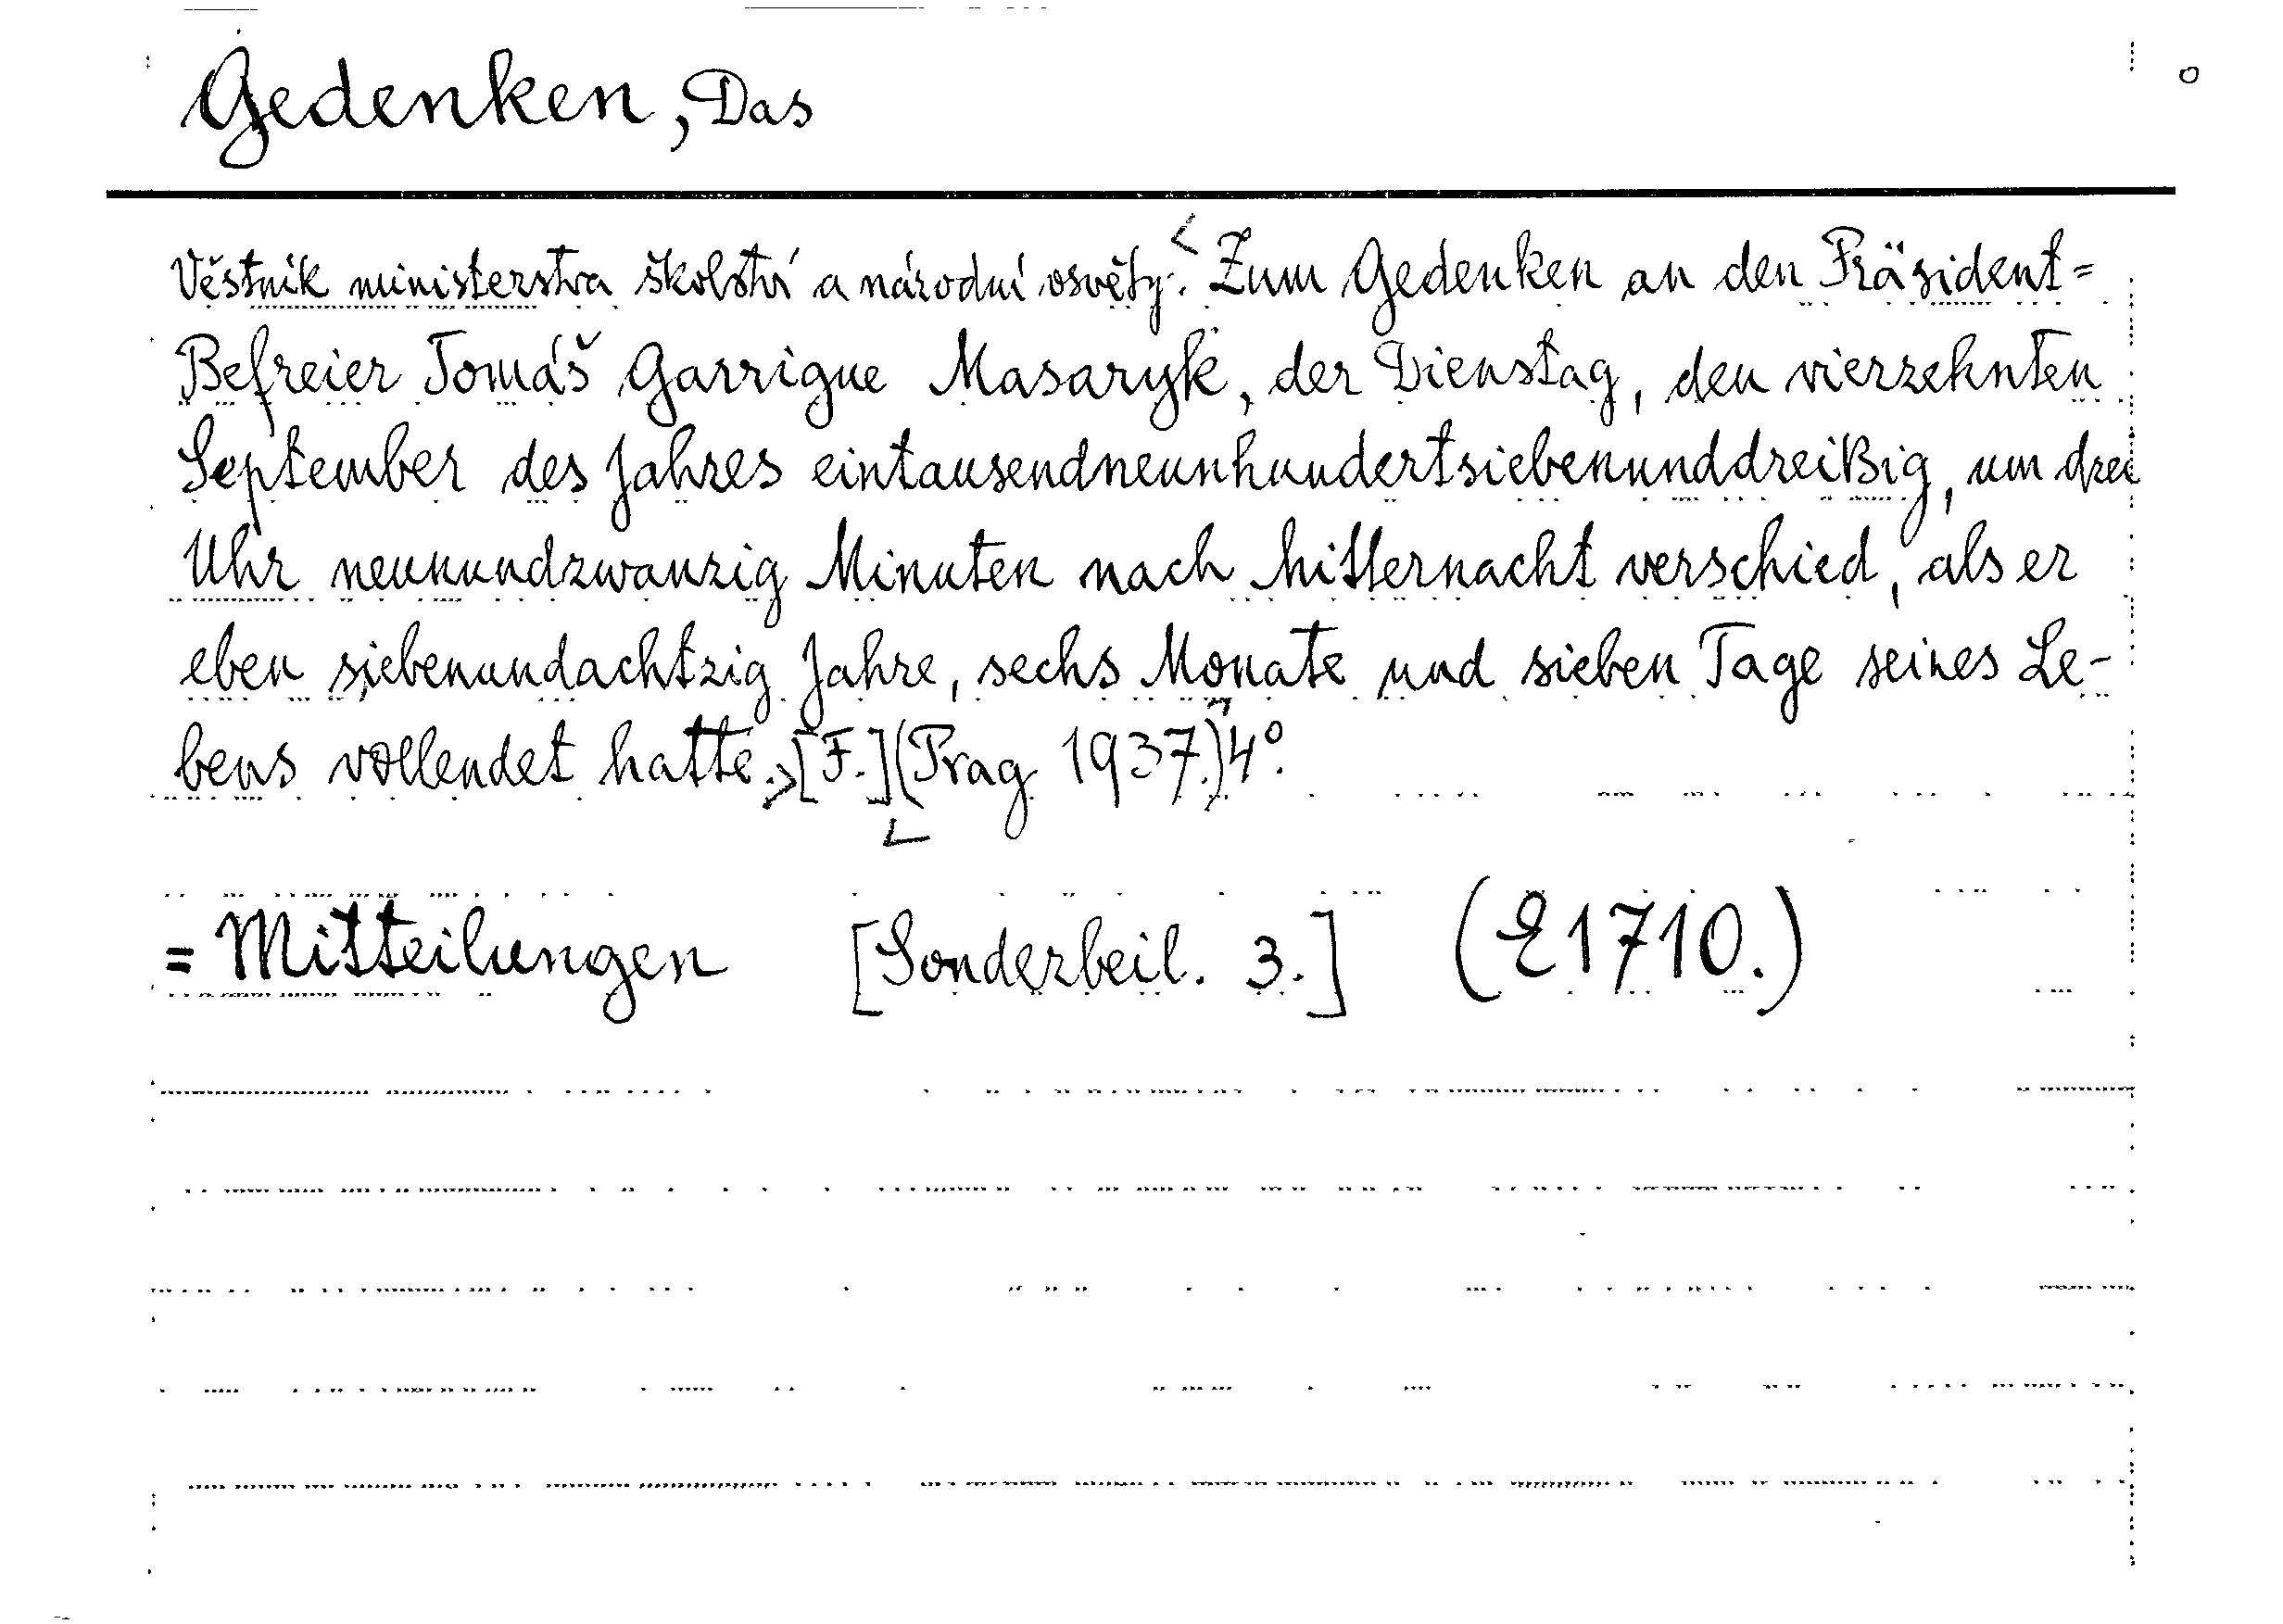 Gedenken, Das
Věstník ministerstva školství a národní osvěty: < Zum Gedenken an den Präsident=
Befreier Tomáš Garrigue Masaryk, der Dienstag, den vierzehnten
September des Jahres eintausendneunhundertsiebenunddreißig, um drei
Uhr neunundzwanzig Minuten nach Mitternacht verschied, als er
eben siebenundachtzig Jahre, sechs Monate und sieben Tage seines Le-
bens vollendet hatte.> [F.] (Prag 1937.) 4°.
= Mitteilungen [Sonderbeil. 3.] (E1710.)